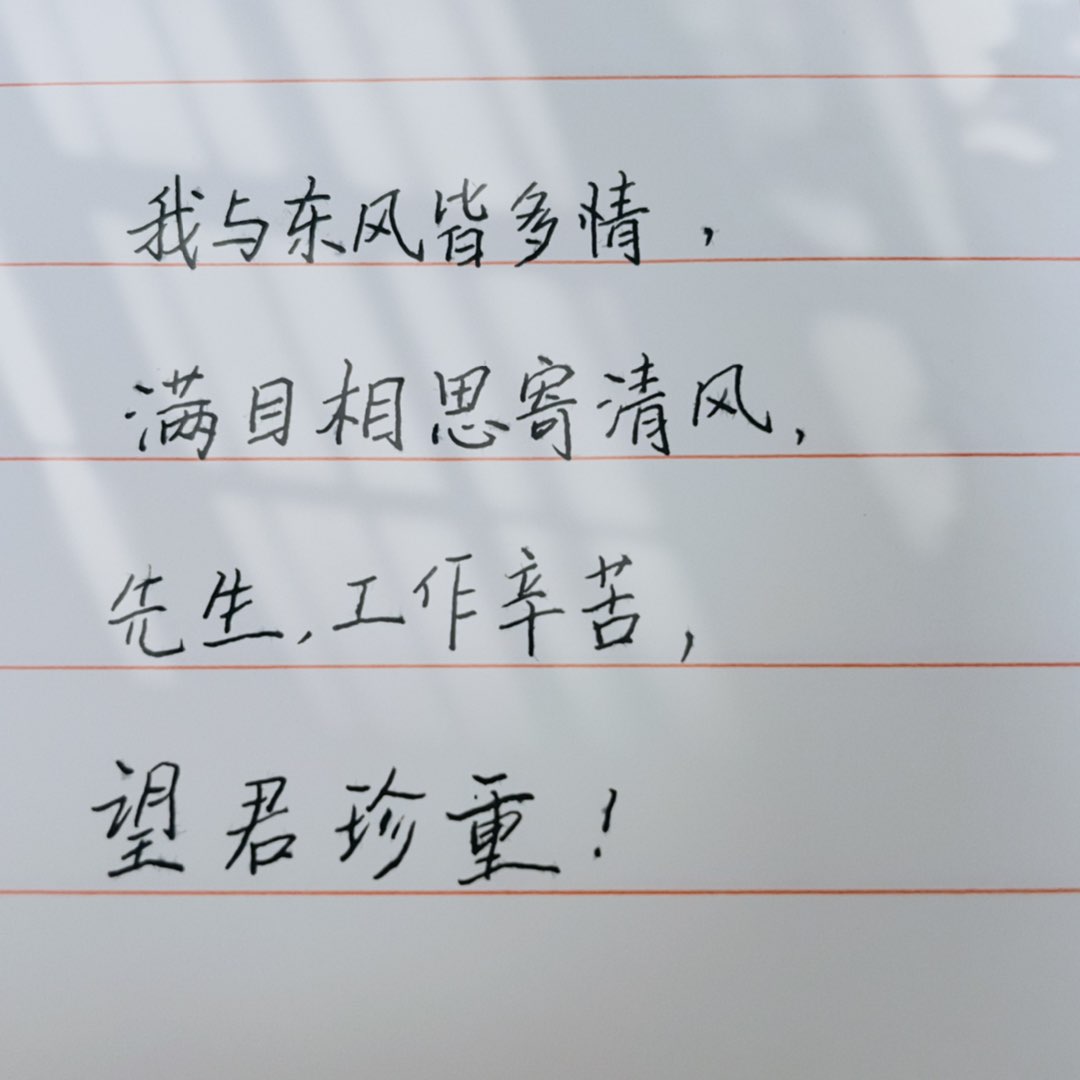 我与东风皆多情，
满目相思寄清风，
先生，工作辛苦，
望君珍重！